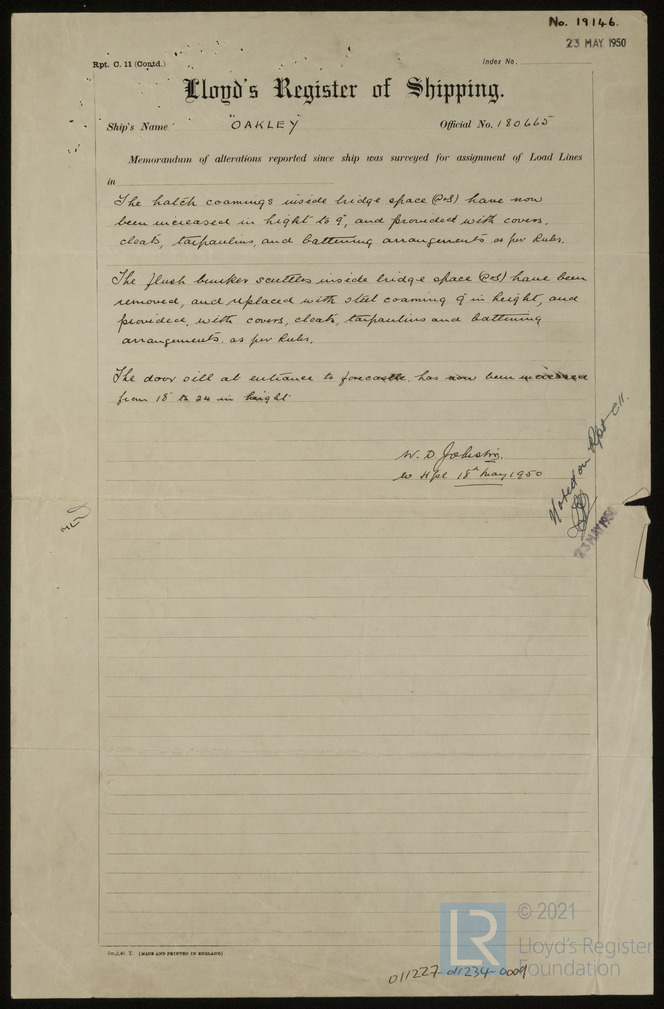 No. 19146.
23 MAY 1950
Rpt. C. 11 (Contd.)
Index No.
Lloyd's Register of Shipping.
Ship's Name "OAKLEY" Official No. 180665
Memorandum of alterations reported since ship was surveyed for assignment of Load Lines
in
The hatch coamings inside bridge space (P&S) have now
been increased in height to 9", and provided with covers,
cleats, tarpaulins, and battening arrangements as per Rules.
The flush bunker scuttles inside bridge space (P&S) have been
removed, and replaced with steel coaming 9" in height, and
provided with covers, cleats, tarpaulins and battening
arrangements. as per Rules.
The door sill at entrance to forecastle has now been increased
from 18" to 24 in height
W. D. Johnston.
18th May 1950
Noted on Rpt C11.
23 MAY 1950
(MADE AND PRINTED IN ENGLAND)
LR
© 2021
Lloyd's Register
Foundation
011227-011234-0009